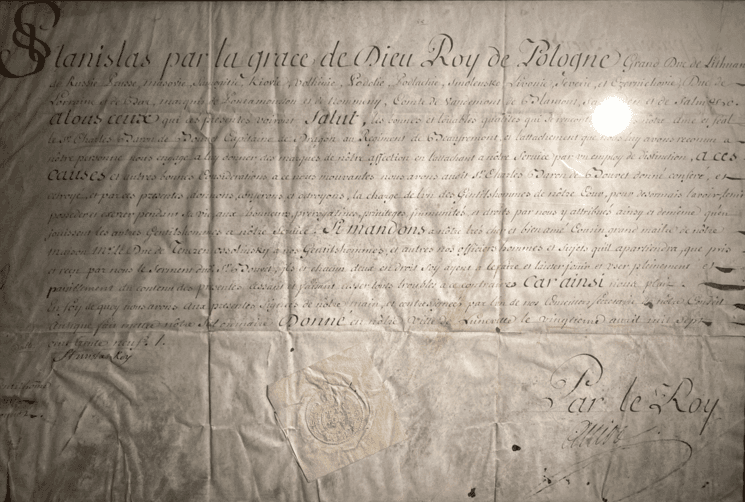 Stanislas par la grace de Dieu Roy de Pologne Grand Duc de Lithuan
de Russie Prusse, Masovie Samogitie Kiovie Volhinie, Podolie Podlachie, Smolensko Livonie Severie, et Czernichovie Duc de
Lorraine et de Bar, Marquis de Pontamousson et de Nommeny, Comte de Vaudemont de Blamont, et de Salm
a tous ceux qui ces presentes verront Salut, les bonnes et louables qualités qui se rencontrent notre amé et feal
le Sr Charles Baron de Bouvet Capitaine de Dragon au Regiment de Beaufremont, et l'attachement que nous luy avons reconnu a
nôtre personne nous engage a luy donner des marques de nôtre affection en l'attachant a nôtre Service par un employ de distinction, a ces
causes et autres bonnes Considerations a ce nous mouvantes nous avons audit Sr Charles Baron de Bouvet donné, conferé, et
octroyé et par ces presentes donnons, conferons et octroyons, la charge de l'un des Gentilshommes de nôtre Cour, pour desormais l'avoir tenir
posseder et exercer pendant sa vie, aux honneurs, prerogatives, privileges, immunités et droits par nous y attribués ainsy et de même qu'en
jouissent les autres Gentilshommes de nôtre Si mandons a nôtre tres cher et bien amé Cousin grand maitre de nôtre
maison Mr le Duc de a nos Gentilshommes, et autres nos officiers hommes et Sujets qu'il apartiendra, que pris
et receu par nous le Serment dud. Sr Bouvet ils et chacun deux en droit Soy ayent a le faire et laisser jouir et user pleinement et
paisiblement du contenu des presentes, cessant et faisant cesser tous troubles a ce contraires Car ainsi nous plait
En foy de quoy nous avons aux presentes Signées de nôtre main, et contresignées par l'un de nos
fait mettre nôtre Donné en nôtre Ville de Luneville le avril mil Sept
cent trente neuf
Stanislas Roy
Par le Roy